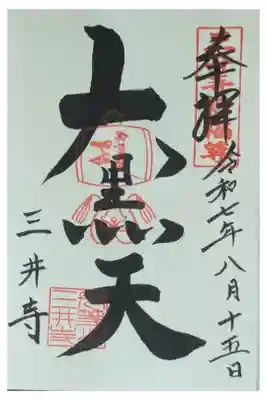 奉拝
令和七年八月十五日
大黒天
三井寺